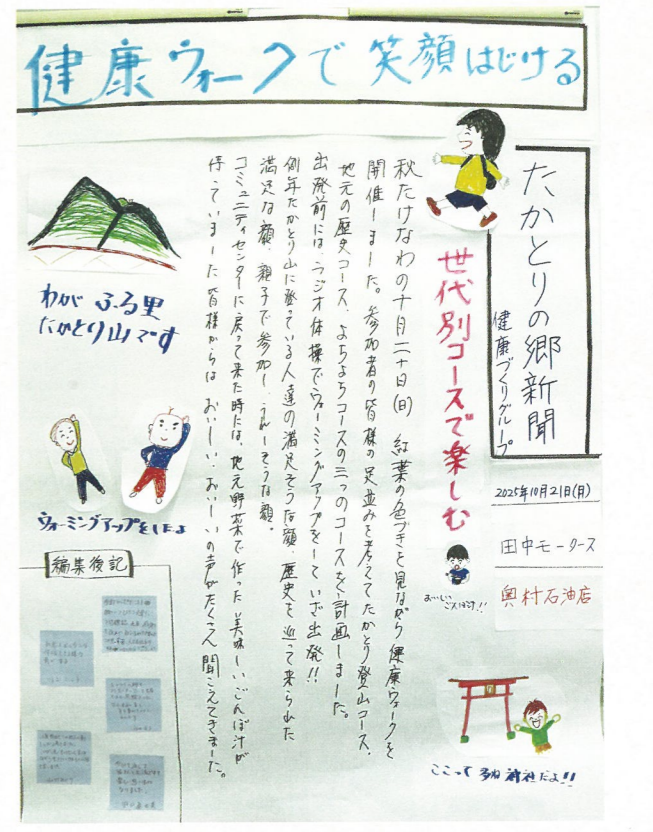 健康ウォークで笑顔はじける
たかとりの郷新聞
健康づくりグループ
2025年10月21日(月)
田中モータース
奥村石油店
世代別コースで楽しむ
秋たけなわの十月二十日(日) 紅葉の色づきを見ながら健康ウォークを
開催しました。参加者の皆様の足並みを考えてたかとり登山コース、
地元の歴史コース、よちよちコースの三つのコースを計画しました。
出発前には、ラジオ体操でウォーミングアップをしていざ出発!!
例年たかとり山に登っている人達の満足そうな顔、歴史を巡って来られた
満足な顔、親子で参加し、うれしそうな顔。
コミュニティセンターに戻って来た時には、地元野菜で作った美味しいごんぼ汁が
待っていました皆様からは おいしい、おいしいの声がたくさん聞こえてきました。
わが ふる里
たかとり山です
ウォーミングアップをしたよ
おいしい
ごんぼ汁!!
ここって 神社だよ!!
編集後記